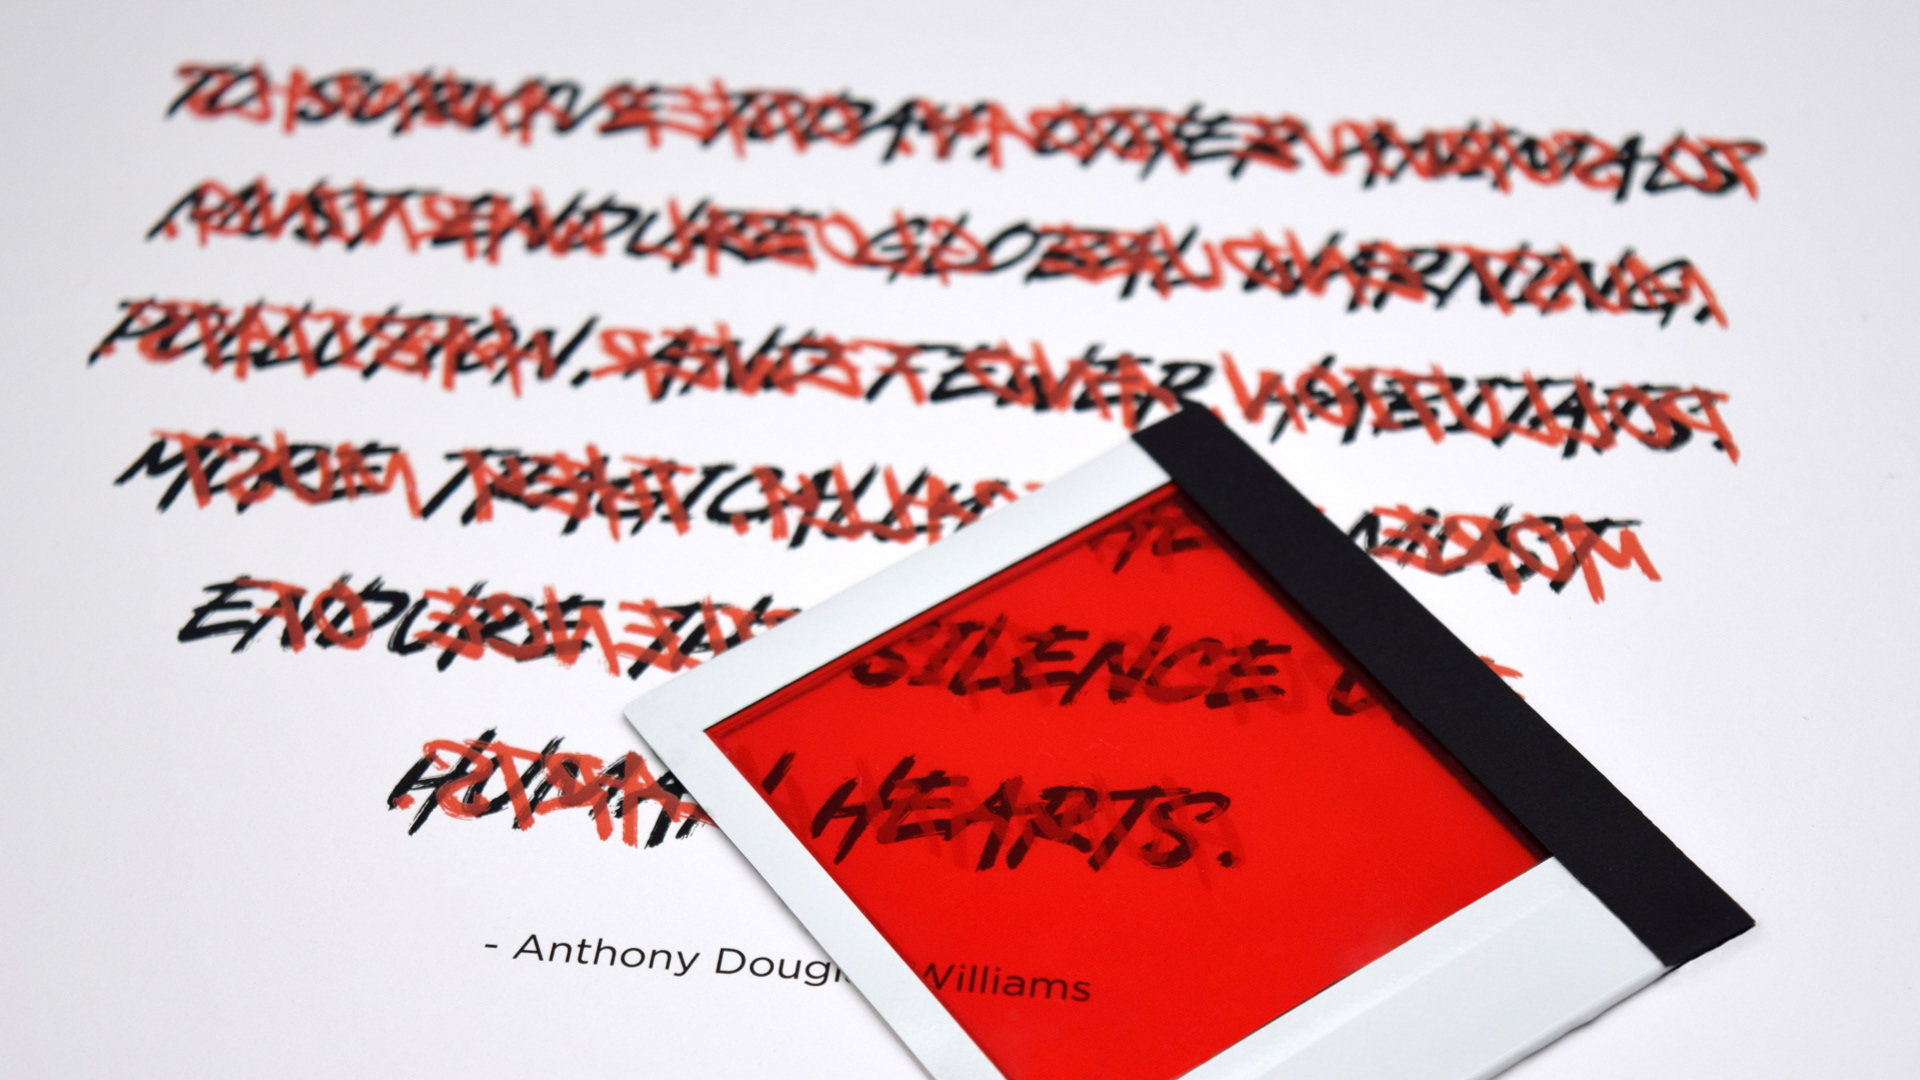 TO SURVIVE TODAY, OTHER ANIMALS
MUST ENDURE GLOBAL WARMING,
POLLUTION, AND FEWER HABITATS.
MORE TRAGICALLY, MUST
ENDURE THE SILENCE
HUMAN HEARTS.
- Anthony Williams